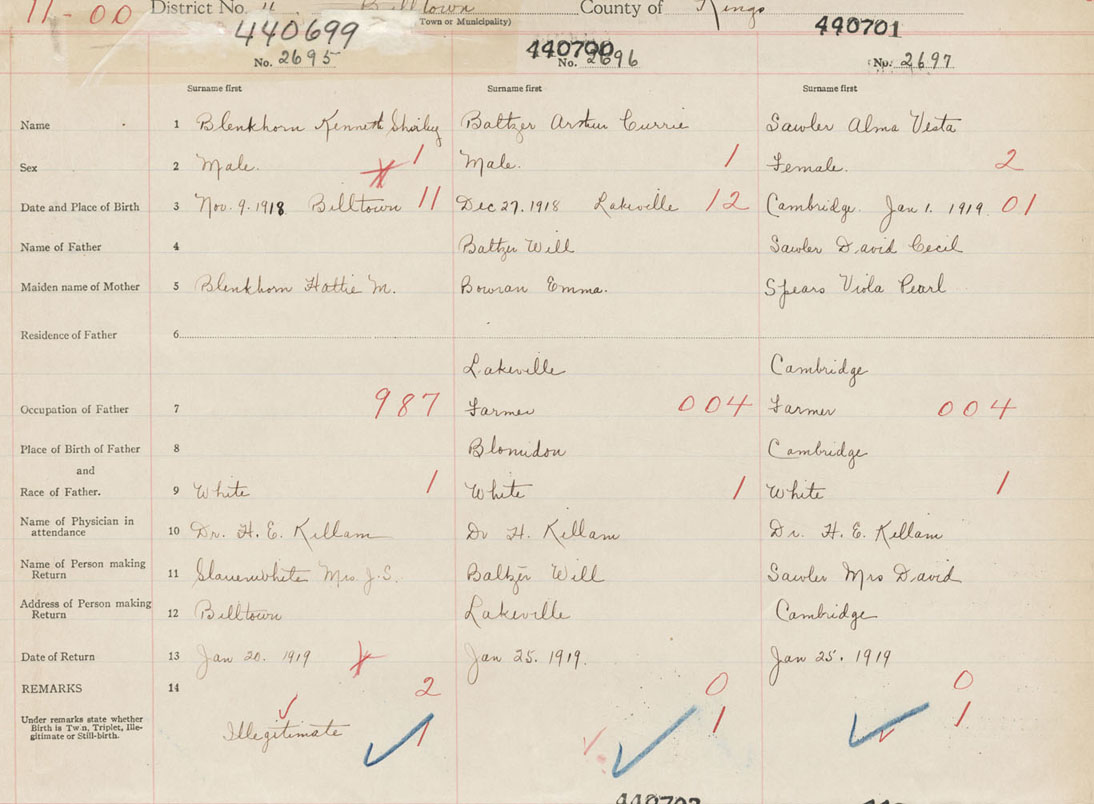 11-00 District No. 11 Billtown County of Kings
Town or Municipality)
440699 440700 440701
No. 2695 No. 2696 No. 2697
Surname first Surname first Surname first
Name 1 Blenkhorn Kenneth Shirley Baltzer Arthur Currie Sawler Alma Vesta
Sex 2 Male. 1 Male. 1 Female. 2
Date and Place of Birth 3 Nov. 9. 1918 Billtown 11 Dec 27. 1918 Lakeville 12 Cambridge. Jan 1. 1919. 01
Name of Father 4 Baltzer Will Sawler David Cecil
Maiden name of Mother 5 Blenkhorn Hattie M. Bowran Emma. Spears Viola Pearl
Residence of Father 6
Lakeville Cambridge
Occupation of Father 7 987 Farmer 004 Farmer 004
Place of Birth of Father 8 Blomidon Cambridge
and
Race of Father. 9 White 1 White 1 White 1
Name of Physician in
attendance 10 Dr. H. E. Killam Dr H. Killam Dr. H. E. Killam
Name of Person making
Return 11 Slauenwhite Mrs J. S. Baltzer Will Sawler Mrs David
Address of Person making
Return 12 Billtown Lakeville Cambridge
Date of Return 13 Jan 20. 1919 Jan 25. 1919. Jan 25. 1919
REMARKS 14 2 0 0
Under remarks state whether
Birth is Twin, Triplet, Ille-
gitimate or Still-birth.
Illegitimate 1 1 1